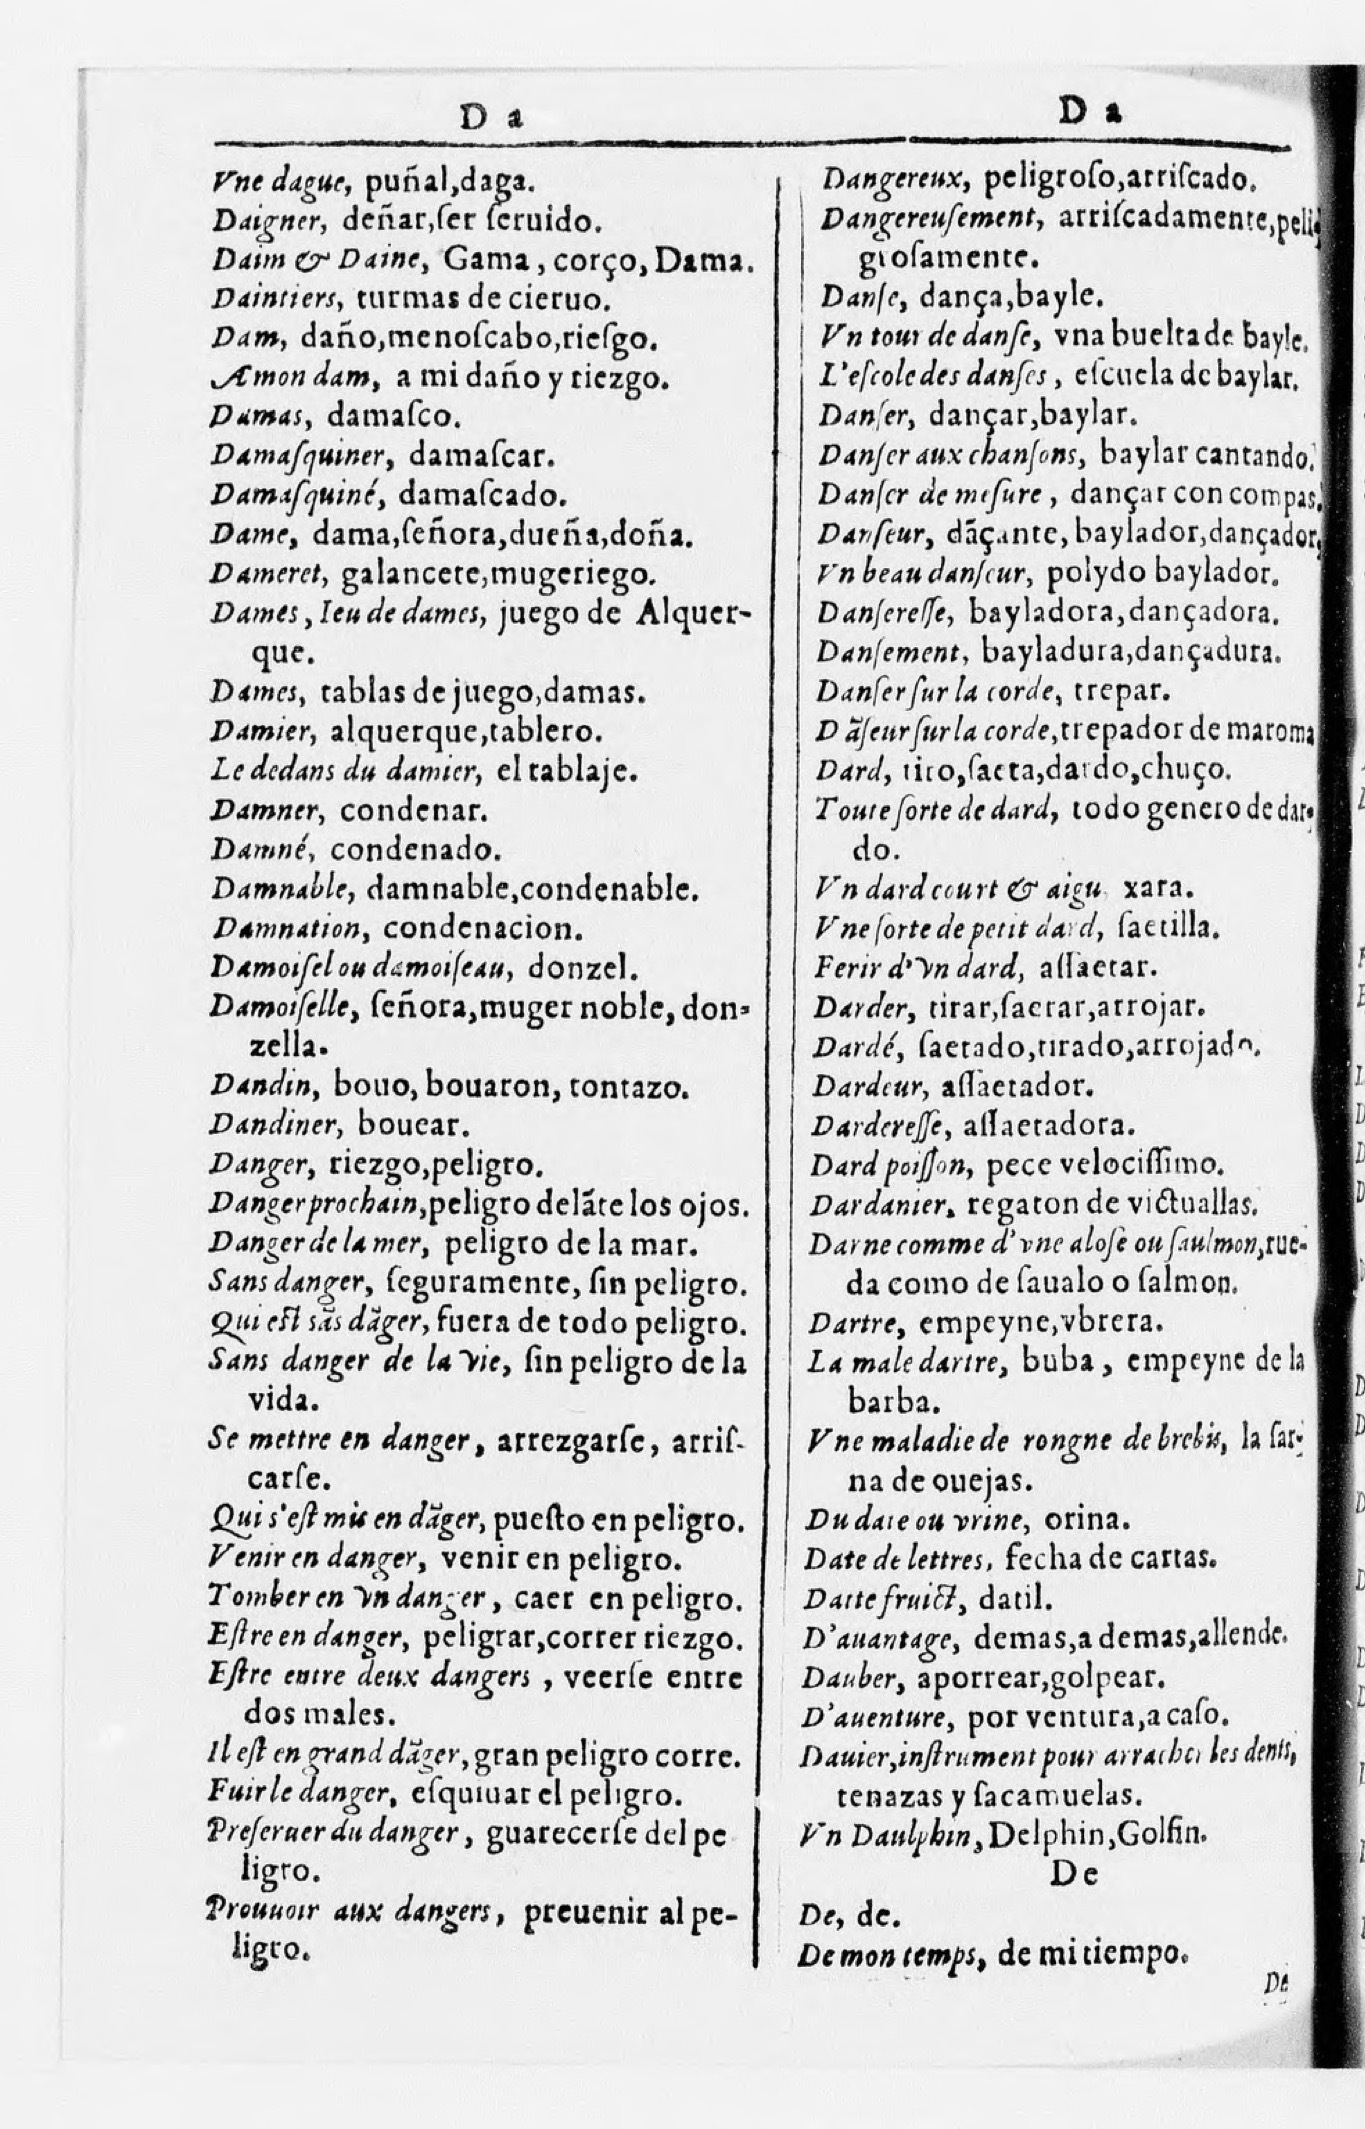 D a
Vne dague, puñal,daga.
Daigner, deñar,ſer ſeruido.
Daim & Daine, Gama, corço, Dama.
Daintiers, turmas de cieruo.
Dam, daño,menoſcabo,rieſgo.
A mon dam, a mi daño y riezgo.
Damas, damaſco.
Damaſquiner, damaſcar.
Damaſquiné, damaſcado.
Dame, dama,ſeñora,dueña,doña.
Dameret, galancete,mugeriego.
Dames, Ieu de dames, juego de Alquer-
que.
Dames, tablas de juego,damas.
Damier, alquerque,tablero.
Le dedans du damier, el tablaje.
Damner, condenar.
Damné, condenado.
Damnable, damnable,condenable.
Damnation, condenacion.
Damoiſel ou damoiſeau, donzel.
Damoiſelle, ſeñora,muger noble, don-
zella.
Dandin, bouo, bouaron, tontazo.
Dandiner, bouear.
Danger, riezgo,peligro.
Danger prochain,peligro delãte los ojos.
Danger de la mer, peligro de la mar.
Sans danger, ſeguramente, ſin peligro.
Qui eſt sãs dãger, fuera de todo peligro.
Sans danger de la vie, ſin peligro de la
vida.
Se mettre en danger, arrezgarſe, arriſ-
carſe.
Qui s'eſt mis en dãger, pueſto en peligro.
Venir en danger, venir en peligro.
Tomber en vn danger, caer en peligro.
Eſtre en danger, peligrar,correr riezgo.
Eſtre entre deux dangers, veerſe entre
dos males.
Il eſt en grand dãger, gran peligro corre.
Fuir le danger, eſquiuar el peligro.
Preſeruer du danger, guarecerſe del pe
ligro.
Prouuoir aux dangers, preuenir al pe-
ligro.
D a
Dangereux, peligroſo,arriſcado.
Dangereuſement, arriſcadamente,peli-
groſamente.
Danſe, dança,bayle.
Vn tour de danſe, vna buelta de bayle.
L'eſcole des danſes, eſcuela de baylar.
Danſer, dançar,baylar.
Danſer aux chanſons, baylar cantando.
Danſer de meſure, dançar con compas.
Danſeur, dãçante, baylador,dançador.
Vn beau danſeur, polydo baylador.
Danſereſſe, bayladora,dançadora.
Danſement, bayladura,dançadura.
Danſer ſur la corde, trepar.
Dãſeur ſur la corde,trepador de maroma
Dard, tiro,ſaeta,dardo,chuço.
Toute ſorte de dard, todo genero de dar-
do.
Vn dard court & aigu, xara.
Vne ſorte de petit dard, ſaetilla.
Ferir d'vn dard, aſſaetar.
Darder, tirar,ſaetar,arrojar.
Dardé, ſaetado,tirado,arrojado.
Dardeur, aſſaetador.
Dardereſſe, aſſaetadora.
Dard poiſſon, pece velociſſimo.
Dardanier, regaton de victuallas.
Darne comme d'vne aloſe ou ſaulmon,rue-
da como de ſaualo o ſalmon.
Dartre, empeyne,vbrera.
La male dartre, buba, empeyne de la
barba.
Vne maladie de rongne de brebis, la ſar-
na de ouejas.
Du date ou vrine, orina.
Date de lettres, fecha de cartas.
Datte fruict, datil.
D'auantage, demas,a demas,allende.
Dauber, aporrear,golpear.
D'auenture, por ventura,a caſo.
Dauier,inſtrument pour arracher les dents,
tenazas y ſacamuelas.
Vn Daulphin, Delphin,Golfin.
De
De, de.
De mon temps, de mi tiempo.
De